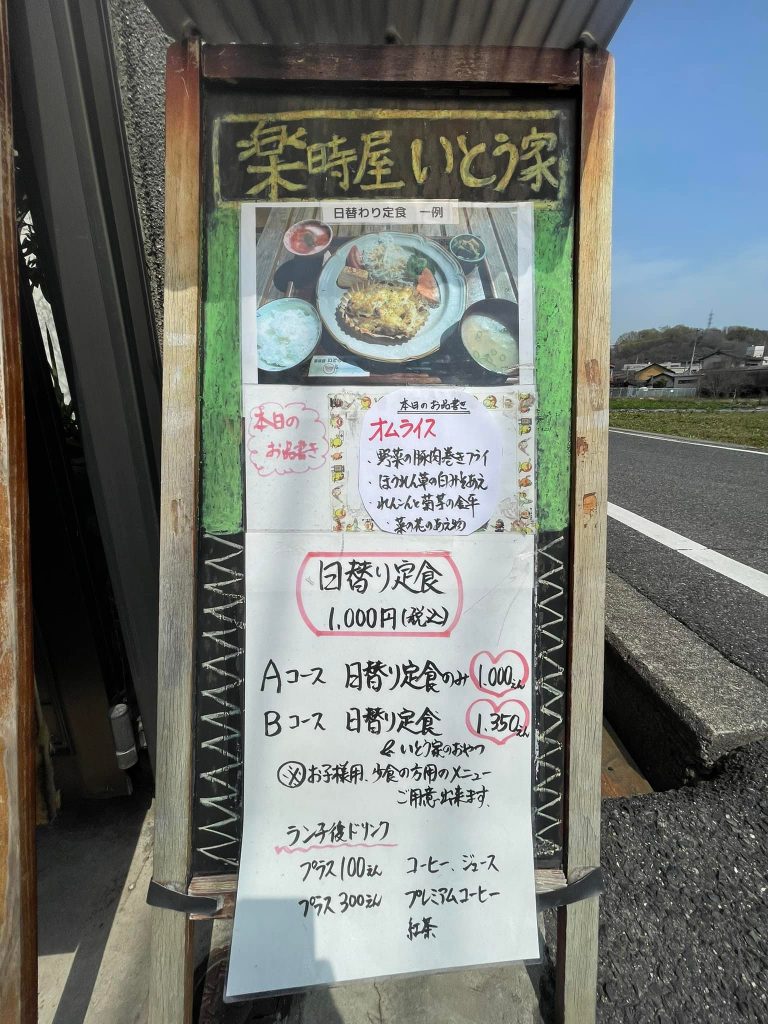 楽時屋 いとう家
日替わり定食 一例
本日の
お品書き
本日のお品書き
オムライス
・野菜の豚肉巻きフライ
・ほうれん草の白みそあえ
れんこんと菊芋の金平
・菜の花のあえ物
日替り定食
1,000円(税込)
Aコース 日替り定食のみ 1.000えん
Bコース 日替り定食 1.350えん
& いとう家のおやつ
※お子様用、少食の方用のメニュー
ご用意出来ます。
ランチ後ドリンク
プラス100えん コーヒー、ジュース
プラス300えん プレミアムコーヒー
紅茶